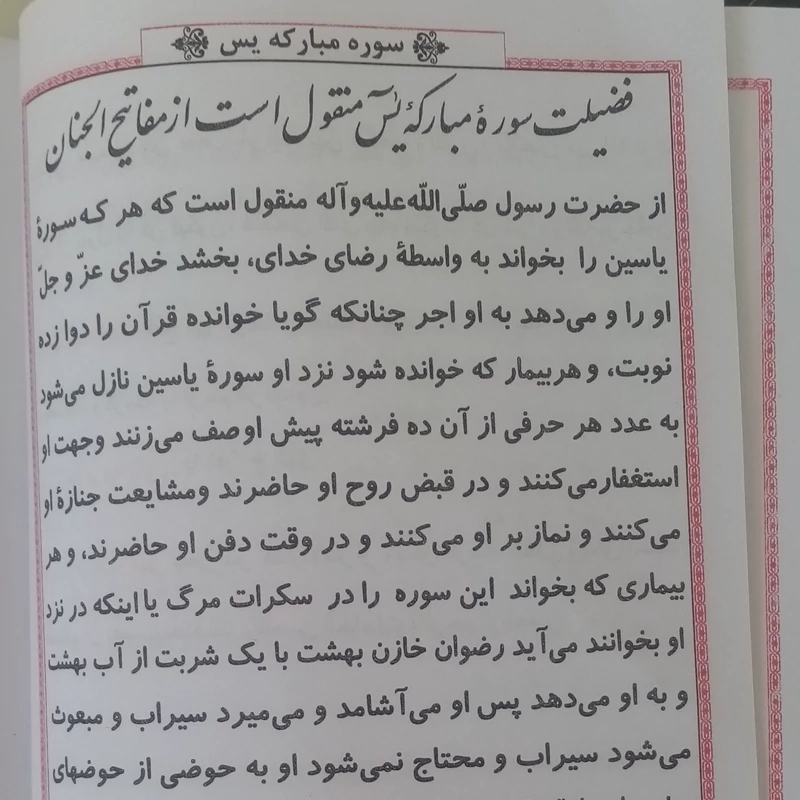 سوره مبارکه یس
فضیلت سورهٔ مبارکهٔ یٰسٓ منقول است از مفاتیح الجنان
از حضرت رسول صلّی‌اللّه‌علیه‌وآله منقول است که هر که سورهٔ
یاسین را بخواند به واسطهٔ رضای خدای، بخشد خدای عزّ و جلّ
او را و می‌دهد به او اجر چنانکه گویا خوانده قرآن را دوازده
نوبت، و هر بیمار که خوانده شود نزد او سورهٔ یاسین نازل می‌شود
به عدد هر حرفی از آن ده فرشته پیش او صف می‌زنند وجهت او
استغفار می‌کنند و در قبض روح او حاضرند ومشایعت جنازهٔ او
می‌کنند و نماز بر او می‌کنند و در وقت دفن او حاضرند، و هر
بیماری که بخواند این سوره را در سکرات مرگ یا اینکه در نزد
او بخوانند می‌آید رضوان خازن بهشت با یک شربت از آب بهشت
و به او می‌دهد پس او می‌آشامد و می‌میرد سیراب و مبعوث
می‌شود سیراب و محتاج نمی‌شود او به حوضی از حوضهای